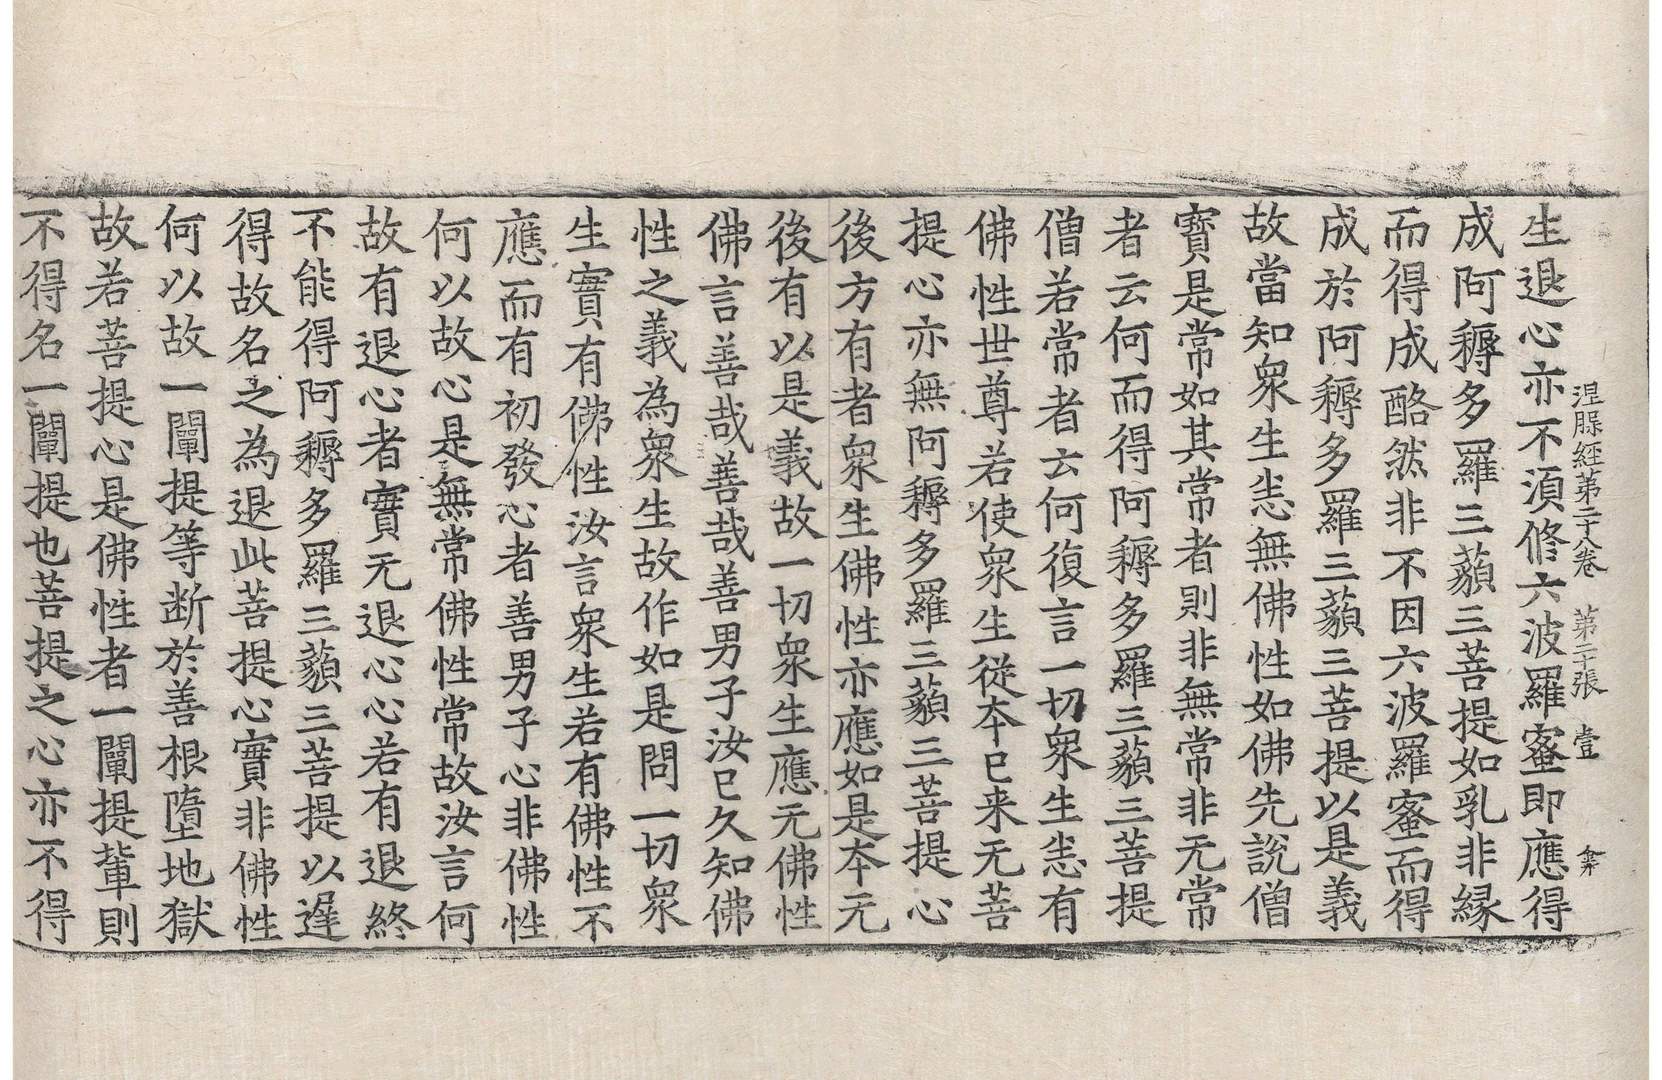 涅槃經第二十八卷 第二十張 壹
生退心亦不湏修六波羅蜜即應得
成阿耨多羅三藐三菩提如乳非縁
而得成酪然非不因六波羅蜜而得
成於阿耨多羅三藐三菩提以是義
故當知衆生悉無佛性如佛先說僧
寳是常如其常者則非無常非无常
者云何而得阿耨多羅三藐三菩提
僧若常者云何復言一切衆生悉有
佛性世尊若使衆生從本已来无菩
提心亦無阿耨多羅三藐三菩提心
後方有者衆生佛性亦應如是本无
後有以是義故一切衆生應无佛性
佛言善哉善哉善男子汝已久知佛
性之義為衆生故作如是問一切衆
生實有佛性汝言衆生若有佛性不
應而有初發心者善男子心非佛性
何以故心是無常佛性常故汝言何
故有退心者實无退心心若有退終
不能得阿耨多羅三藐三菩提以遲
得故名之為退此菩提心實非佛性
何以故一闡提等断於善根墮地獄
故若菩提心是佛性者一闡提軰則
不得名一闡提也菩提之心亦不得